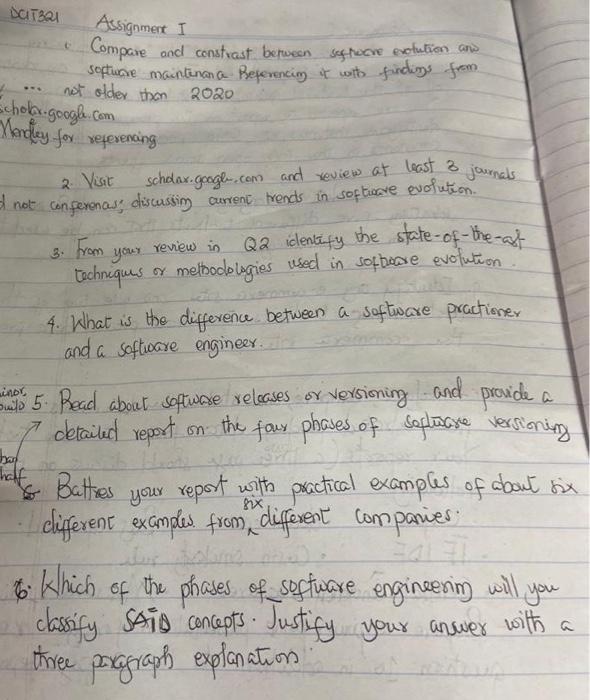 DCIT321 Assignment I
1. Compare and constrast between software evolution and
software maintenance Referencing it with findings from
... not older than 2020
scholar.google.com
Mendley for referencing
2. Visit scholar.google.com and review at least 3 journals
not conferences; discussing current trends in software evolution.
3. From your review in Q2 identify the state-of-the-art
techniques or methodologies used in software evolution.
4. What is the difference between a software practioner
and a software engineer.
5. Read about software releases or versioning and provide a
detailed report on the four phases of software versioning
Battres your report with practical examples of about six
different examples from six different companies.
6. Which of the phases of software engineering will you
classify SAID concepts. Justify your answer with a
three paragraph explanation